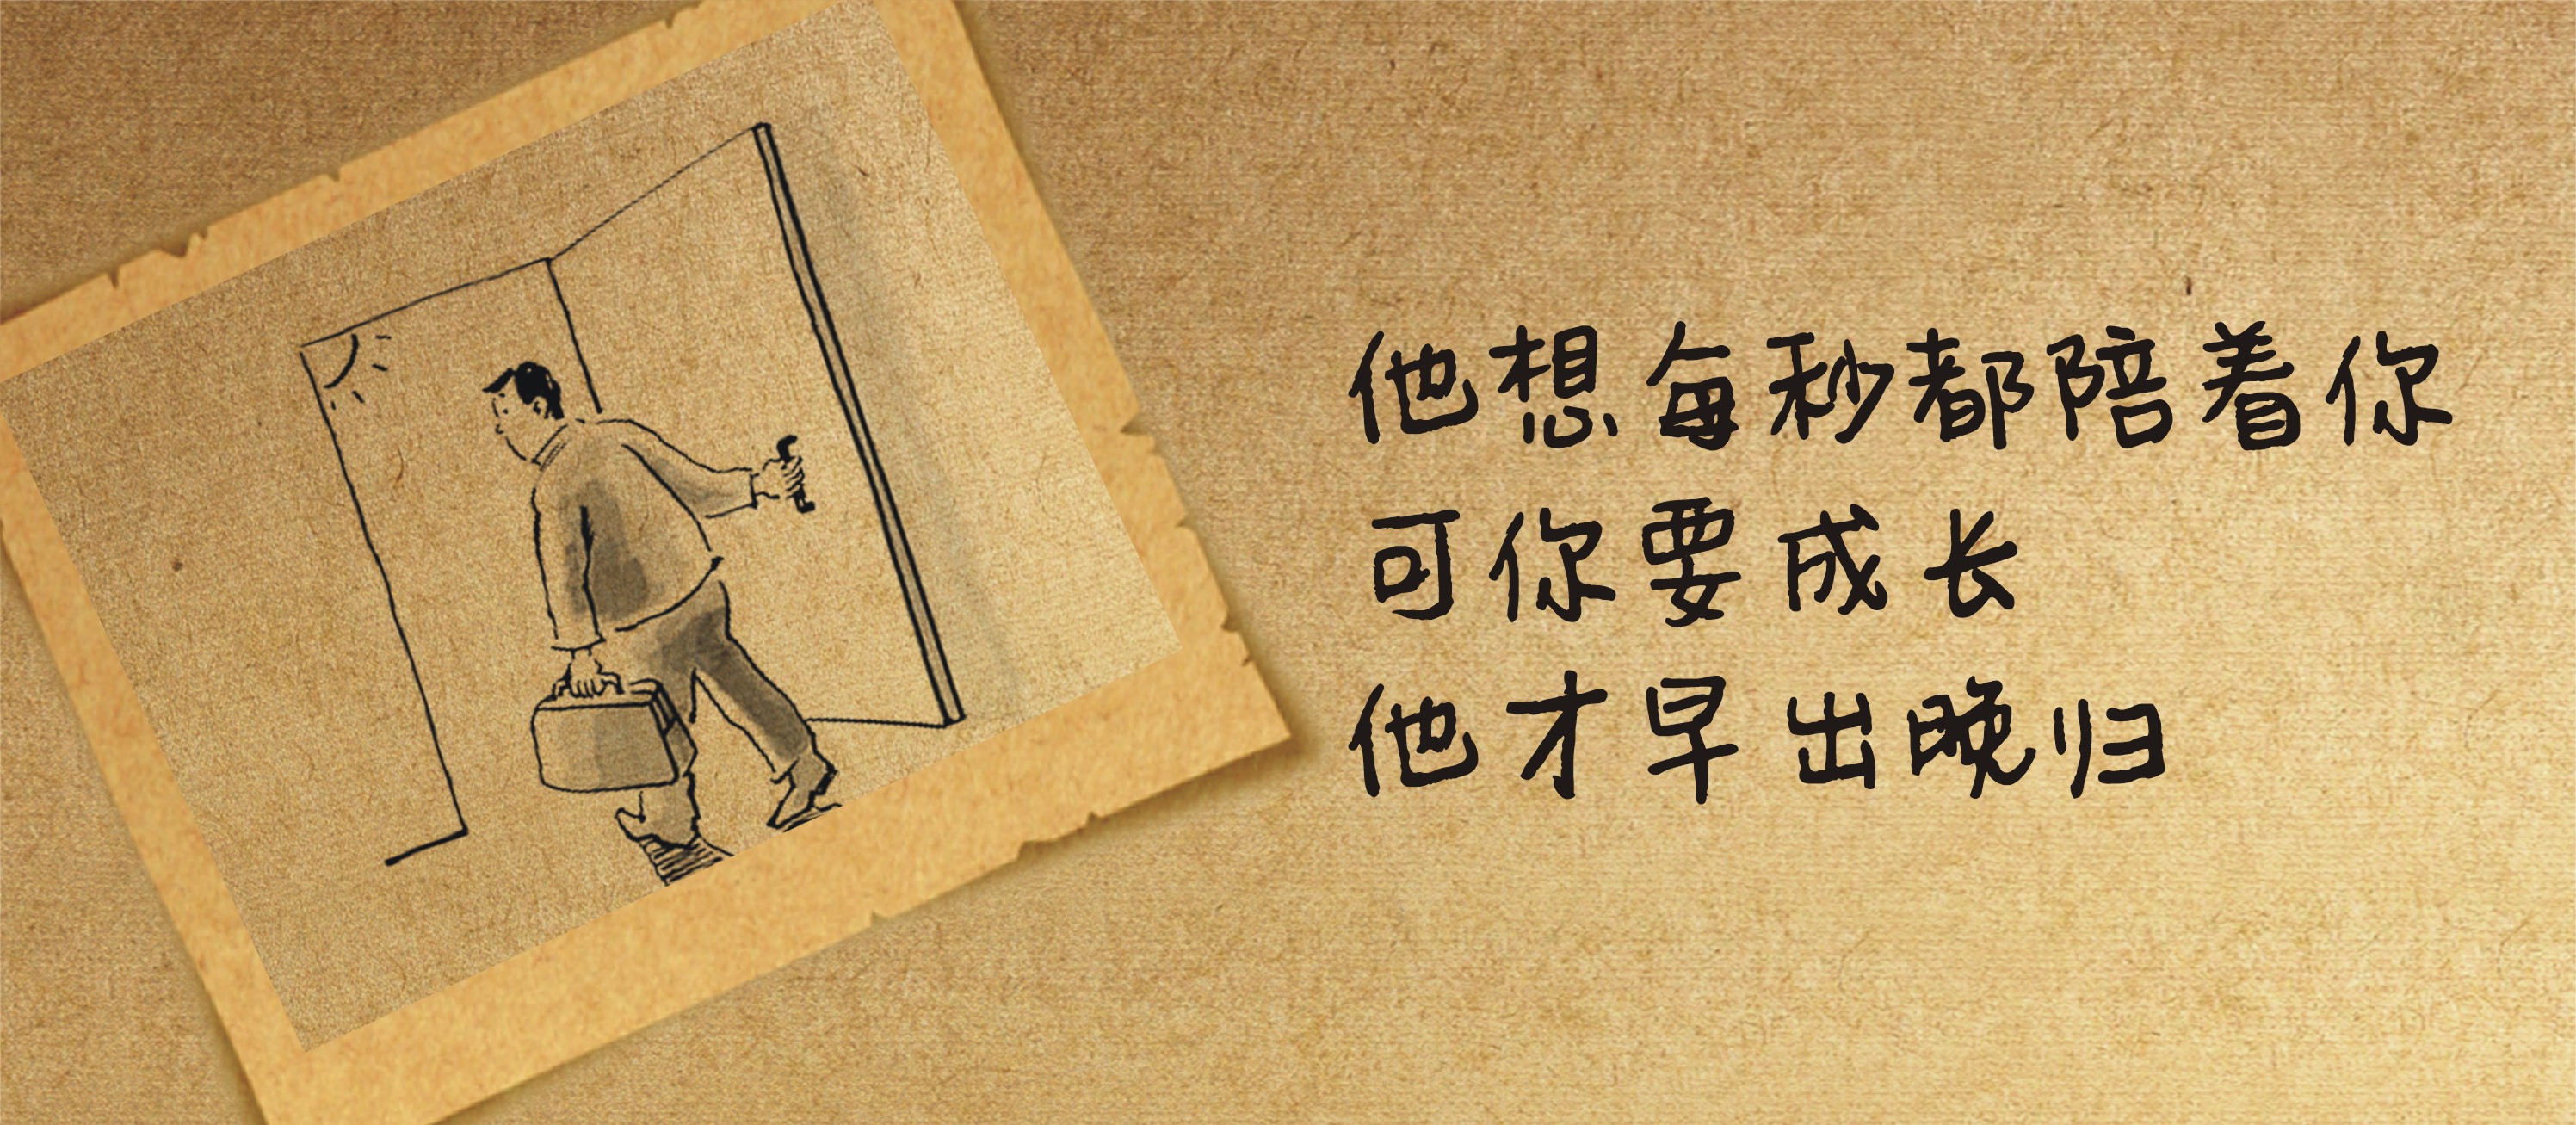 他想每秒都陪着你
可你要成长
他才早出晚归